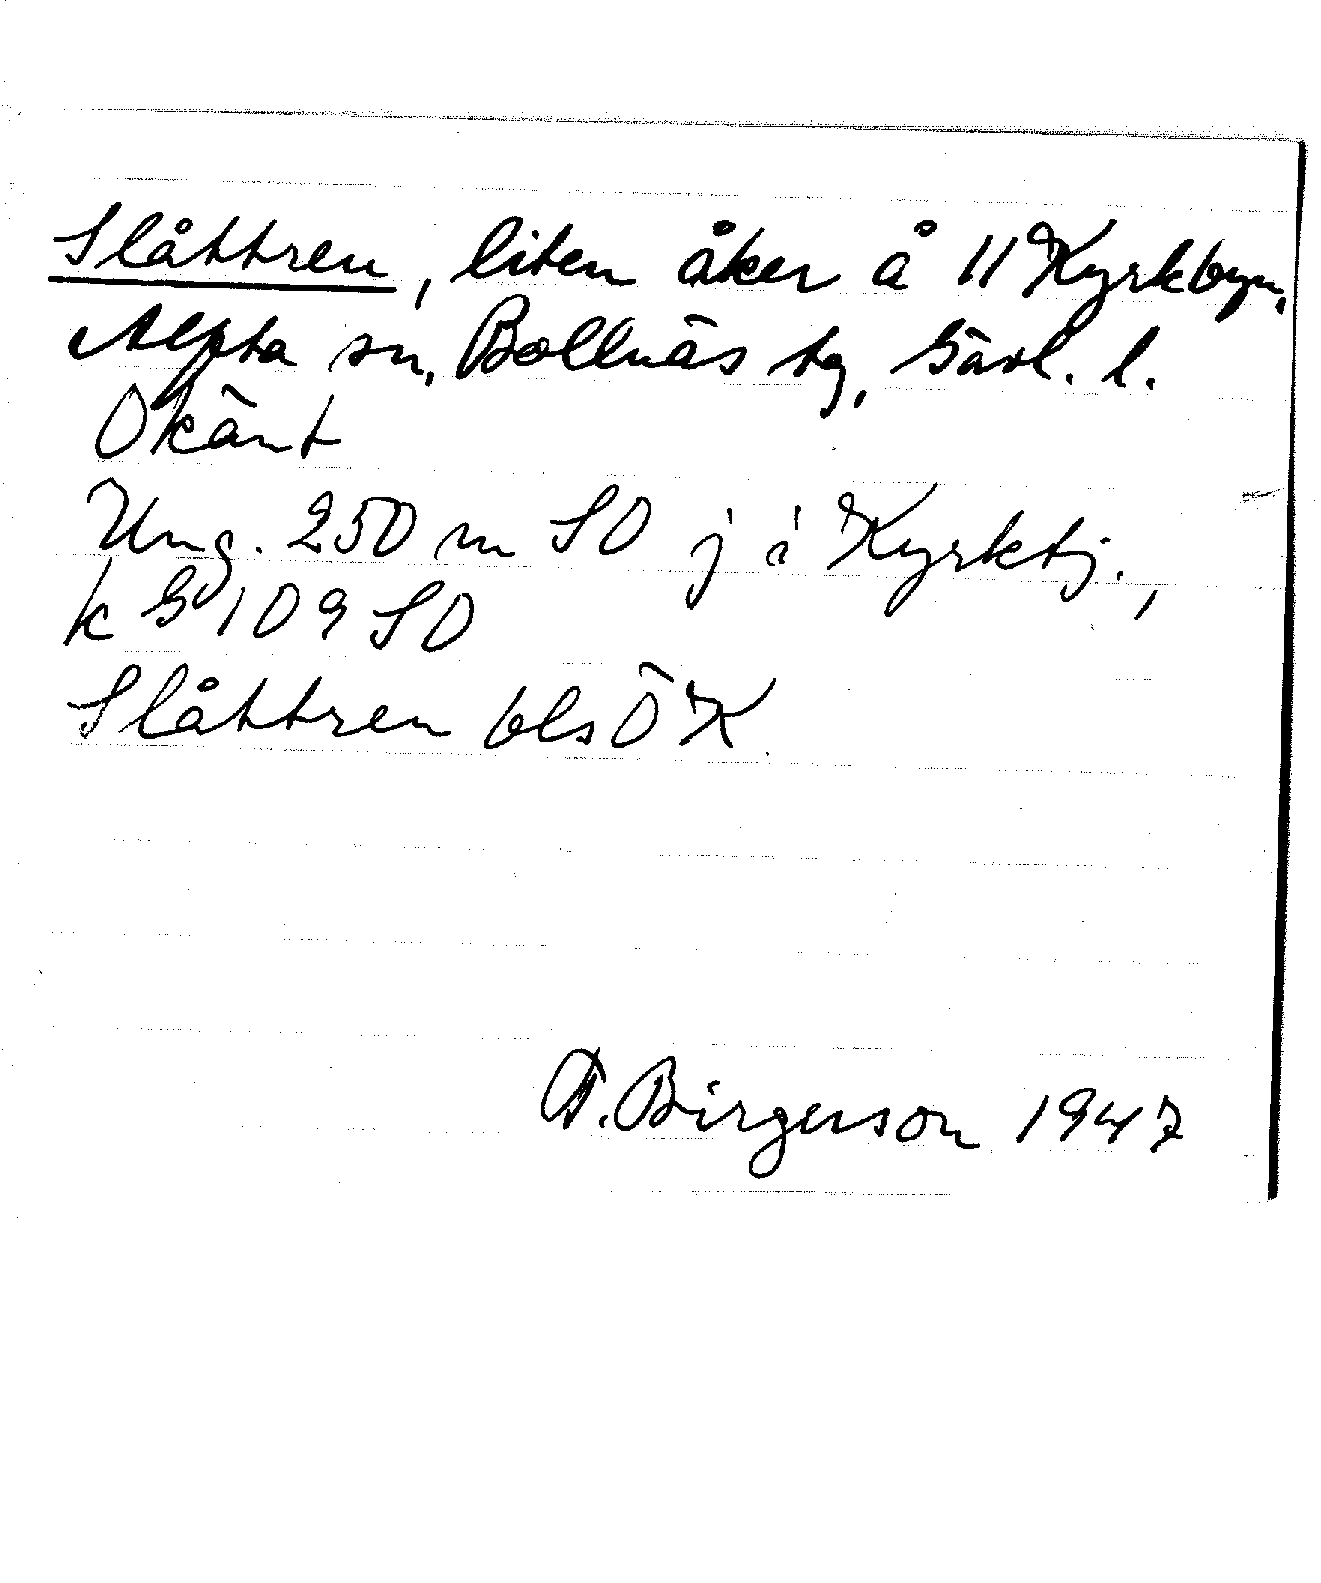 Slåttren, liten åker å 11 Kyrkbyn,
Alfta sn, Bollnäs tg, Gävl. l.
Okänt
Ung. 250 m SO j i Kyrktj.,
k G 109 SO
Slåttren bls Ö K
Birgerson 1947